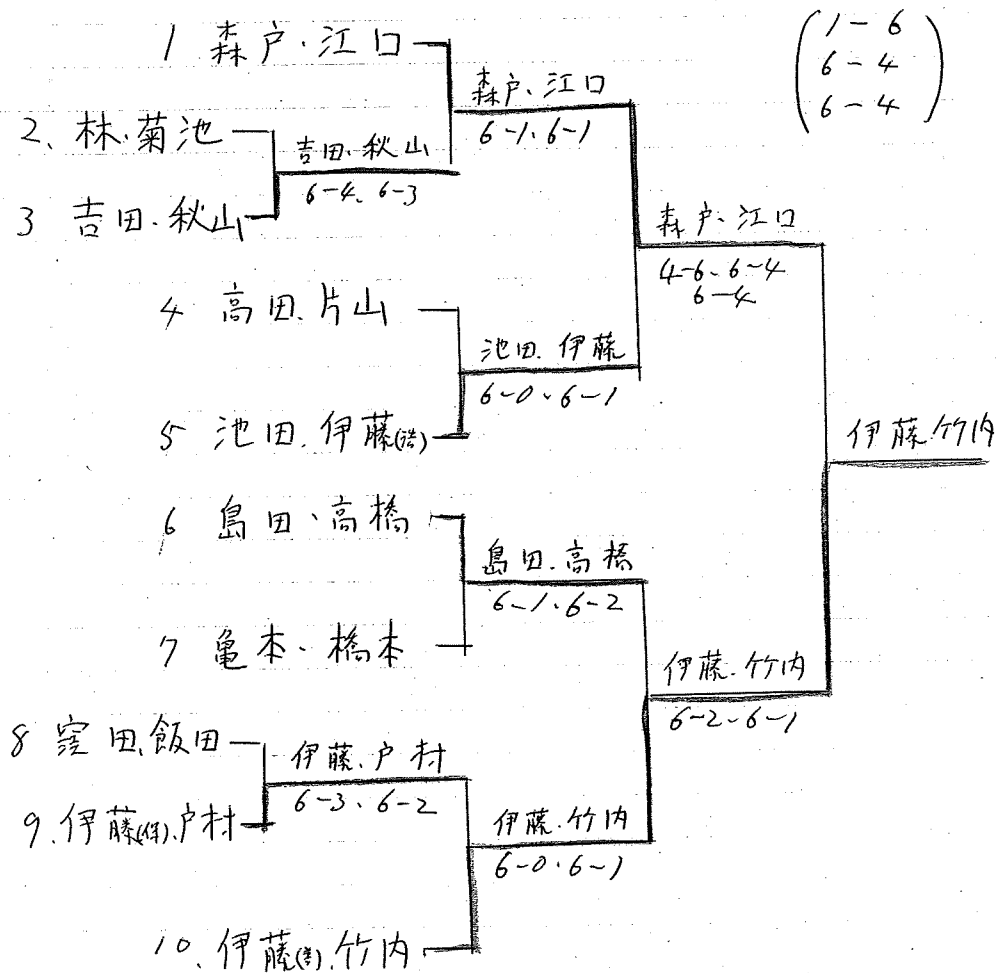 1 森戸・江口
2、林・菊池
3 吉田・秋山
4 高田、片山
5 池田、伊藤(浩)
6 島田・高橋
7 亀本・橋本
8 窪田、飯田
9、伊藤(保)、戸村
10、伊藤、竹内
吉田・秋山
6-4、6-3
伊藤、戸村
6-3、6-2
森戸・江口
6-1、6-1
池田、伊藤
6-0、6-1
島田、高橋
6-1、6-2
伊藤、竹内
6-0、6-1
森戸、江口
4-6、6-4
6-4
伊藤、竹内
6-2、6-1
伊藤、竹内
1-6
6-4
6-4